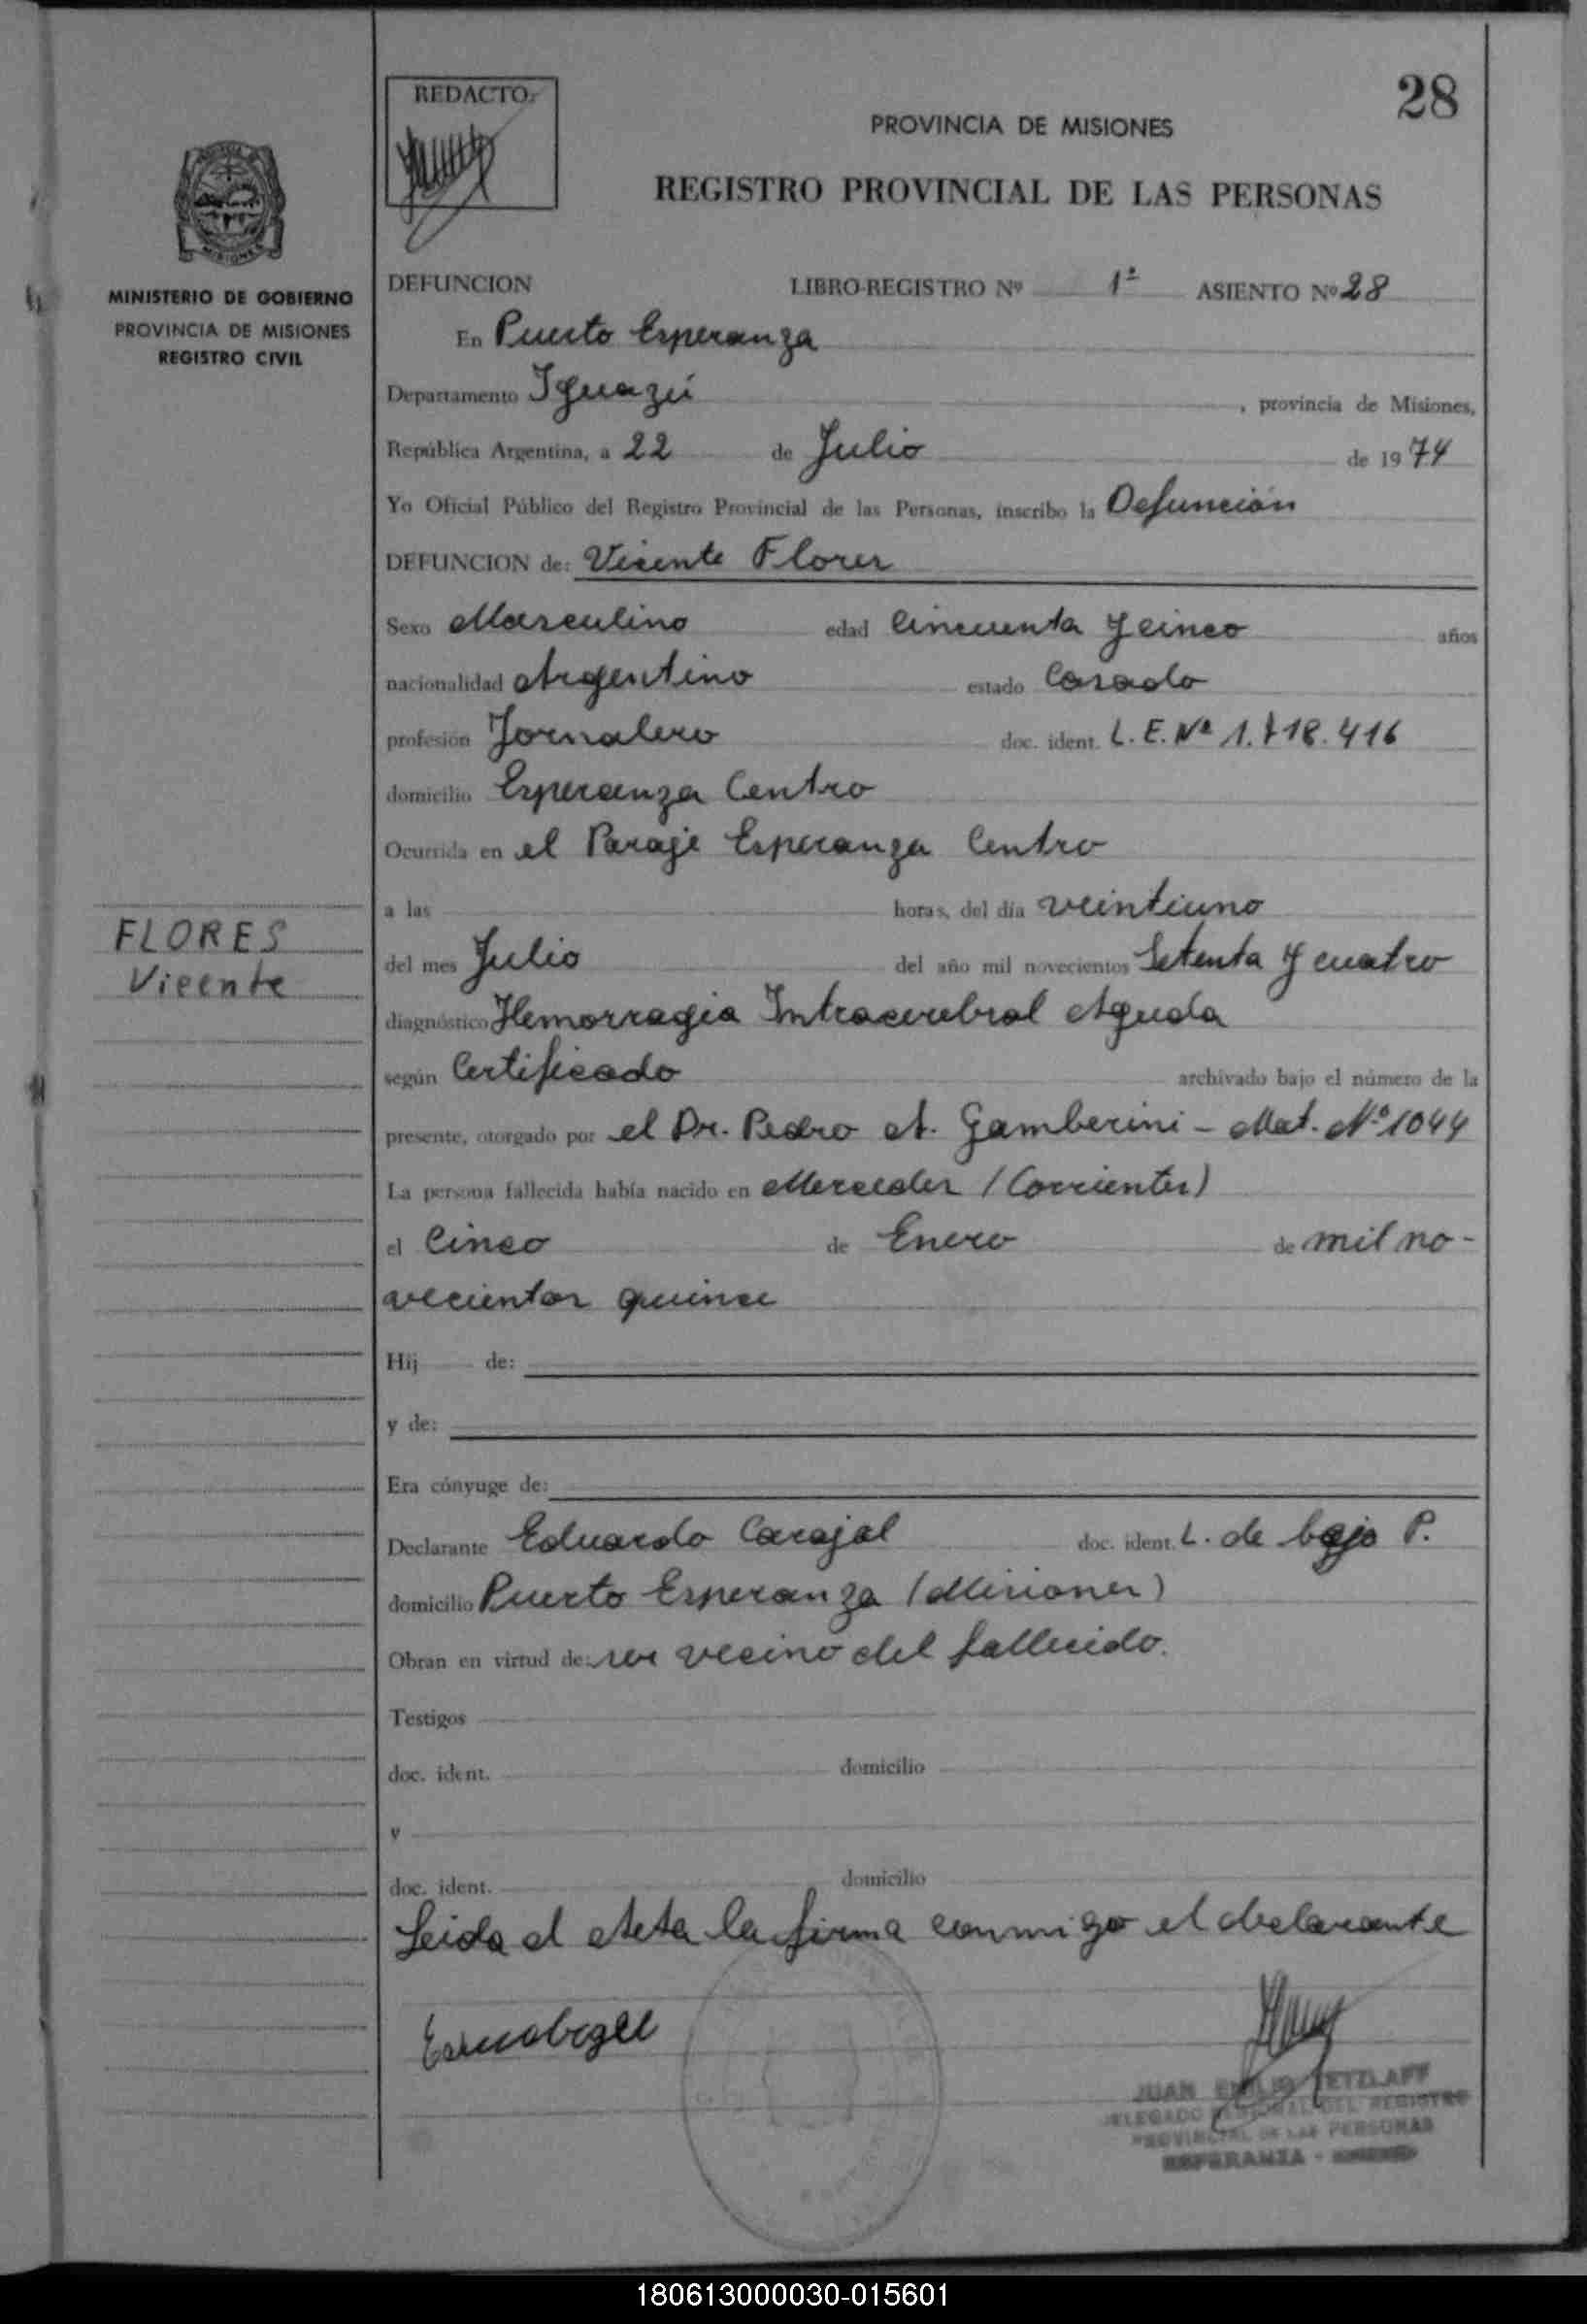 28
REDACTO:
PROVINCIA DE MISIONES
REGISTRO PROVINCIAL DE LAS PERSONAS
MISIONES
MINISTERIO DE GOBIERNO
PROVINCIA DE MISIONES
REGISTRO CIVIL
DEFUNCION LIBRO-REGISTRO Nº 1º ASIENTO Nº 28
En Puerto Esperanza
Departamento Iguazú , provincia de Misiones,
República Argentina, a 22 de Julio de 1974
Yo Oficial Público del Registro Provincial de las Personas, inscribo la Defunción
DEFUNCION de: Vicente Flores
Sexo Masculino edad Cincuenta y cinco años
nacionalidad Argentino estado Casado
profesión Jornalero doc. ident. L. E. Nº 1.718.416
domicilio Esperanza Centro
Ocurrida en el Paraje Esperanza Centro
a las horas, del día veintiuno
FLORES
Vicente
del mes Julio del año mil novecientos Setenta y cuatro
diagnóstico Hemorragia Intracerebral Aguda
según Certificado archivado bajo el número de la
presente, otorgado por el Dr. Pedro A. Gamberini - Mat. Nº 1044
La persona fallecida había nacido en Mercedes (Corrientes)
el Cinco de Enero de mil no-
vecientos quince
Hij de:
y de:
Era cónyuge de:
Declarante Eduardo Carajal doc. ident. L. de bajo P.
domicilio Puerto Esperanza (Misiones)
Obran en virtud de: ser vecino del fallecido.
Testigos
doc. ident. domicilio
y
doc. ident. domicilio
Leida el Acta la firma conmigo el declarante
JUAN EMILIO TETZLAFF
DELEGADO DEL REGISTRO
PROVINCIAL DE LAS PERSONAS
ESPERANZA -
180613000030-015601